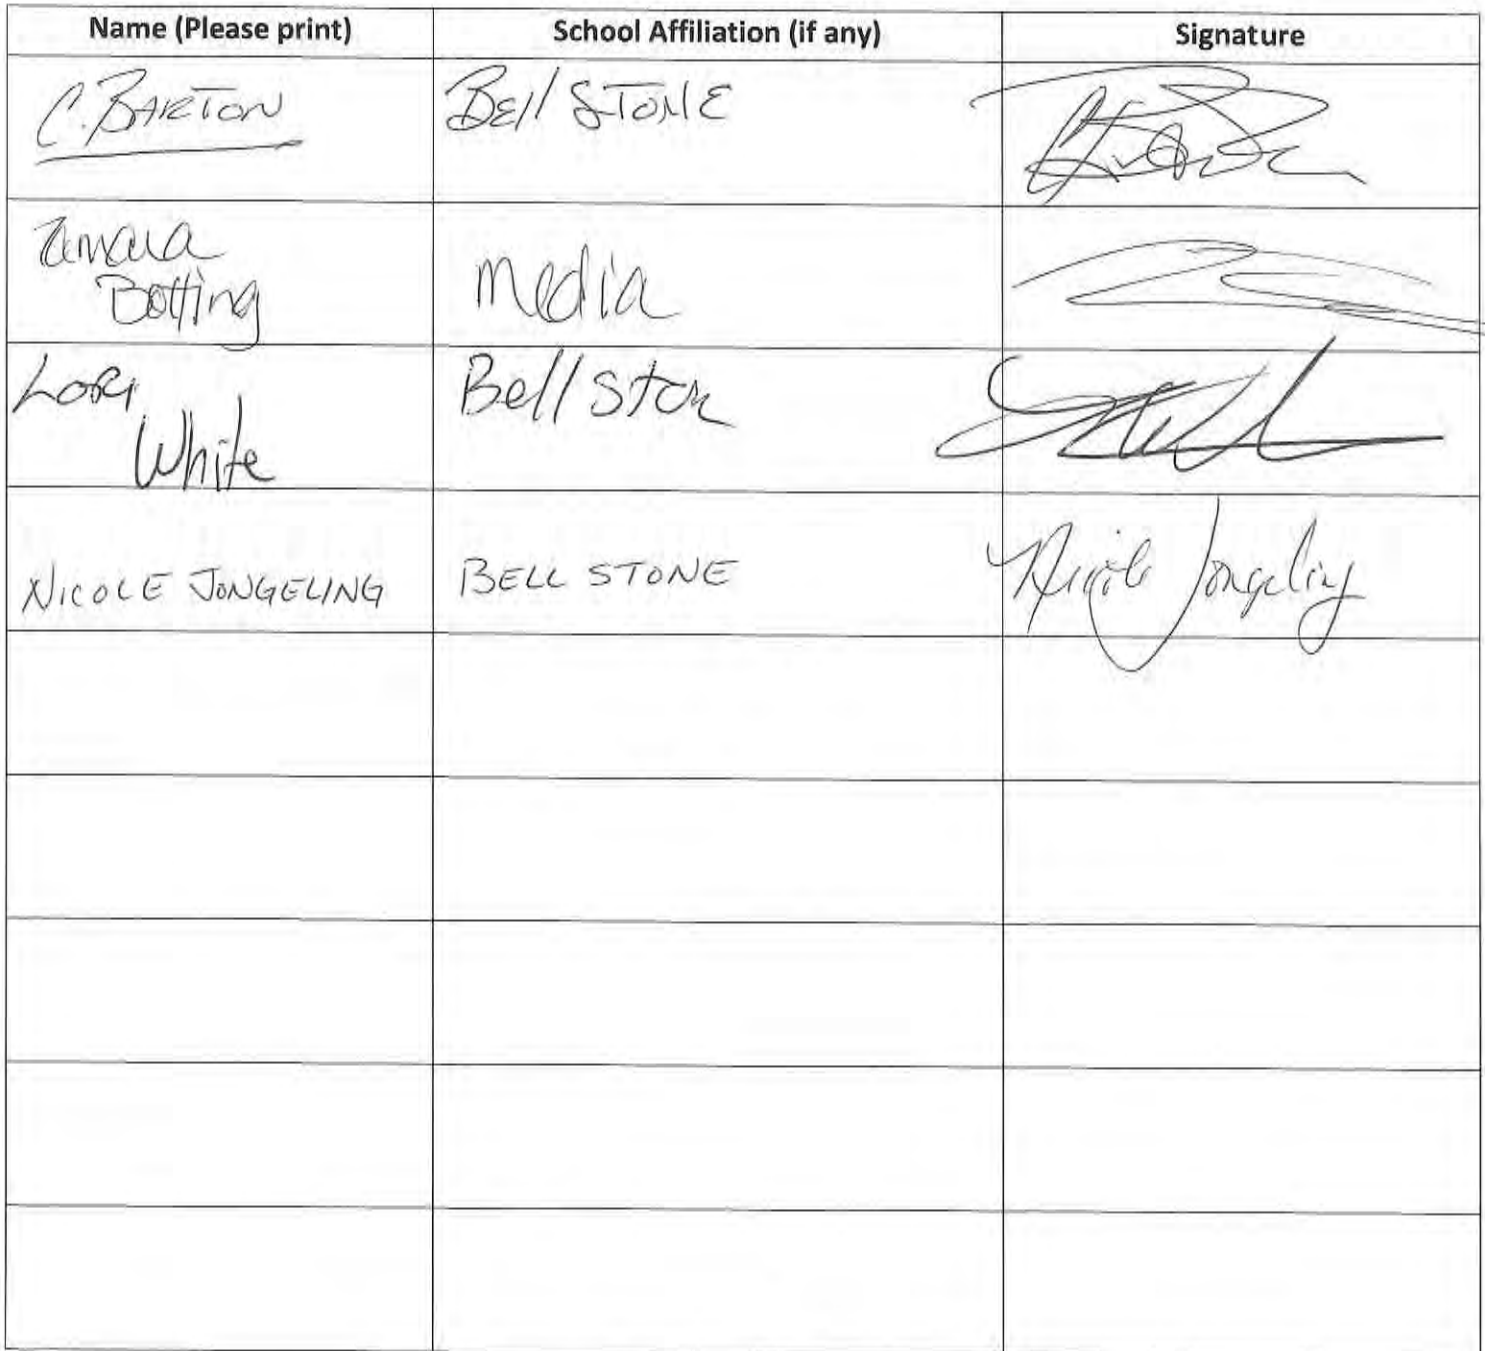 Name (Please print) School Affiliation (if any) Signature
C. BARTON Bell STONE
Tamara
Botting Media
Lori
White Bell Stone
NICOLE JONGELING BELL STONE Nicole Jongeling